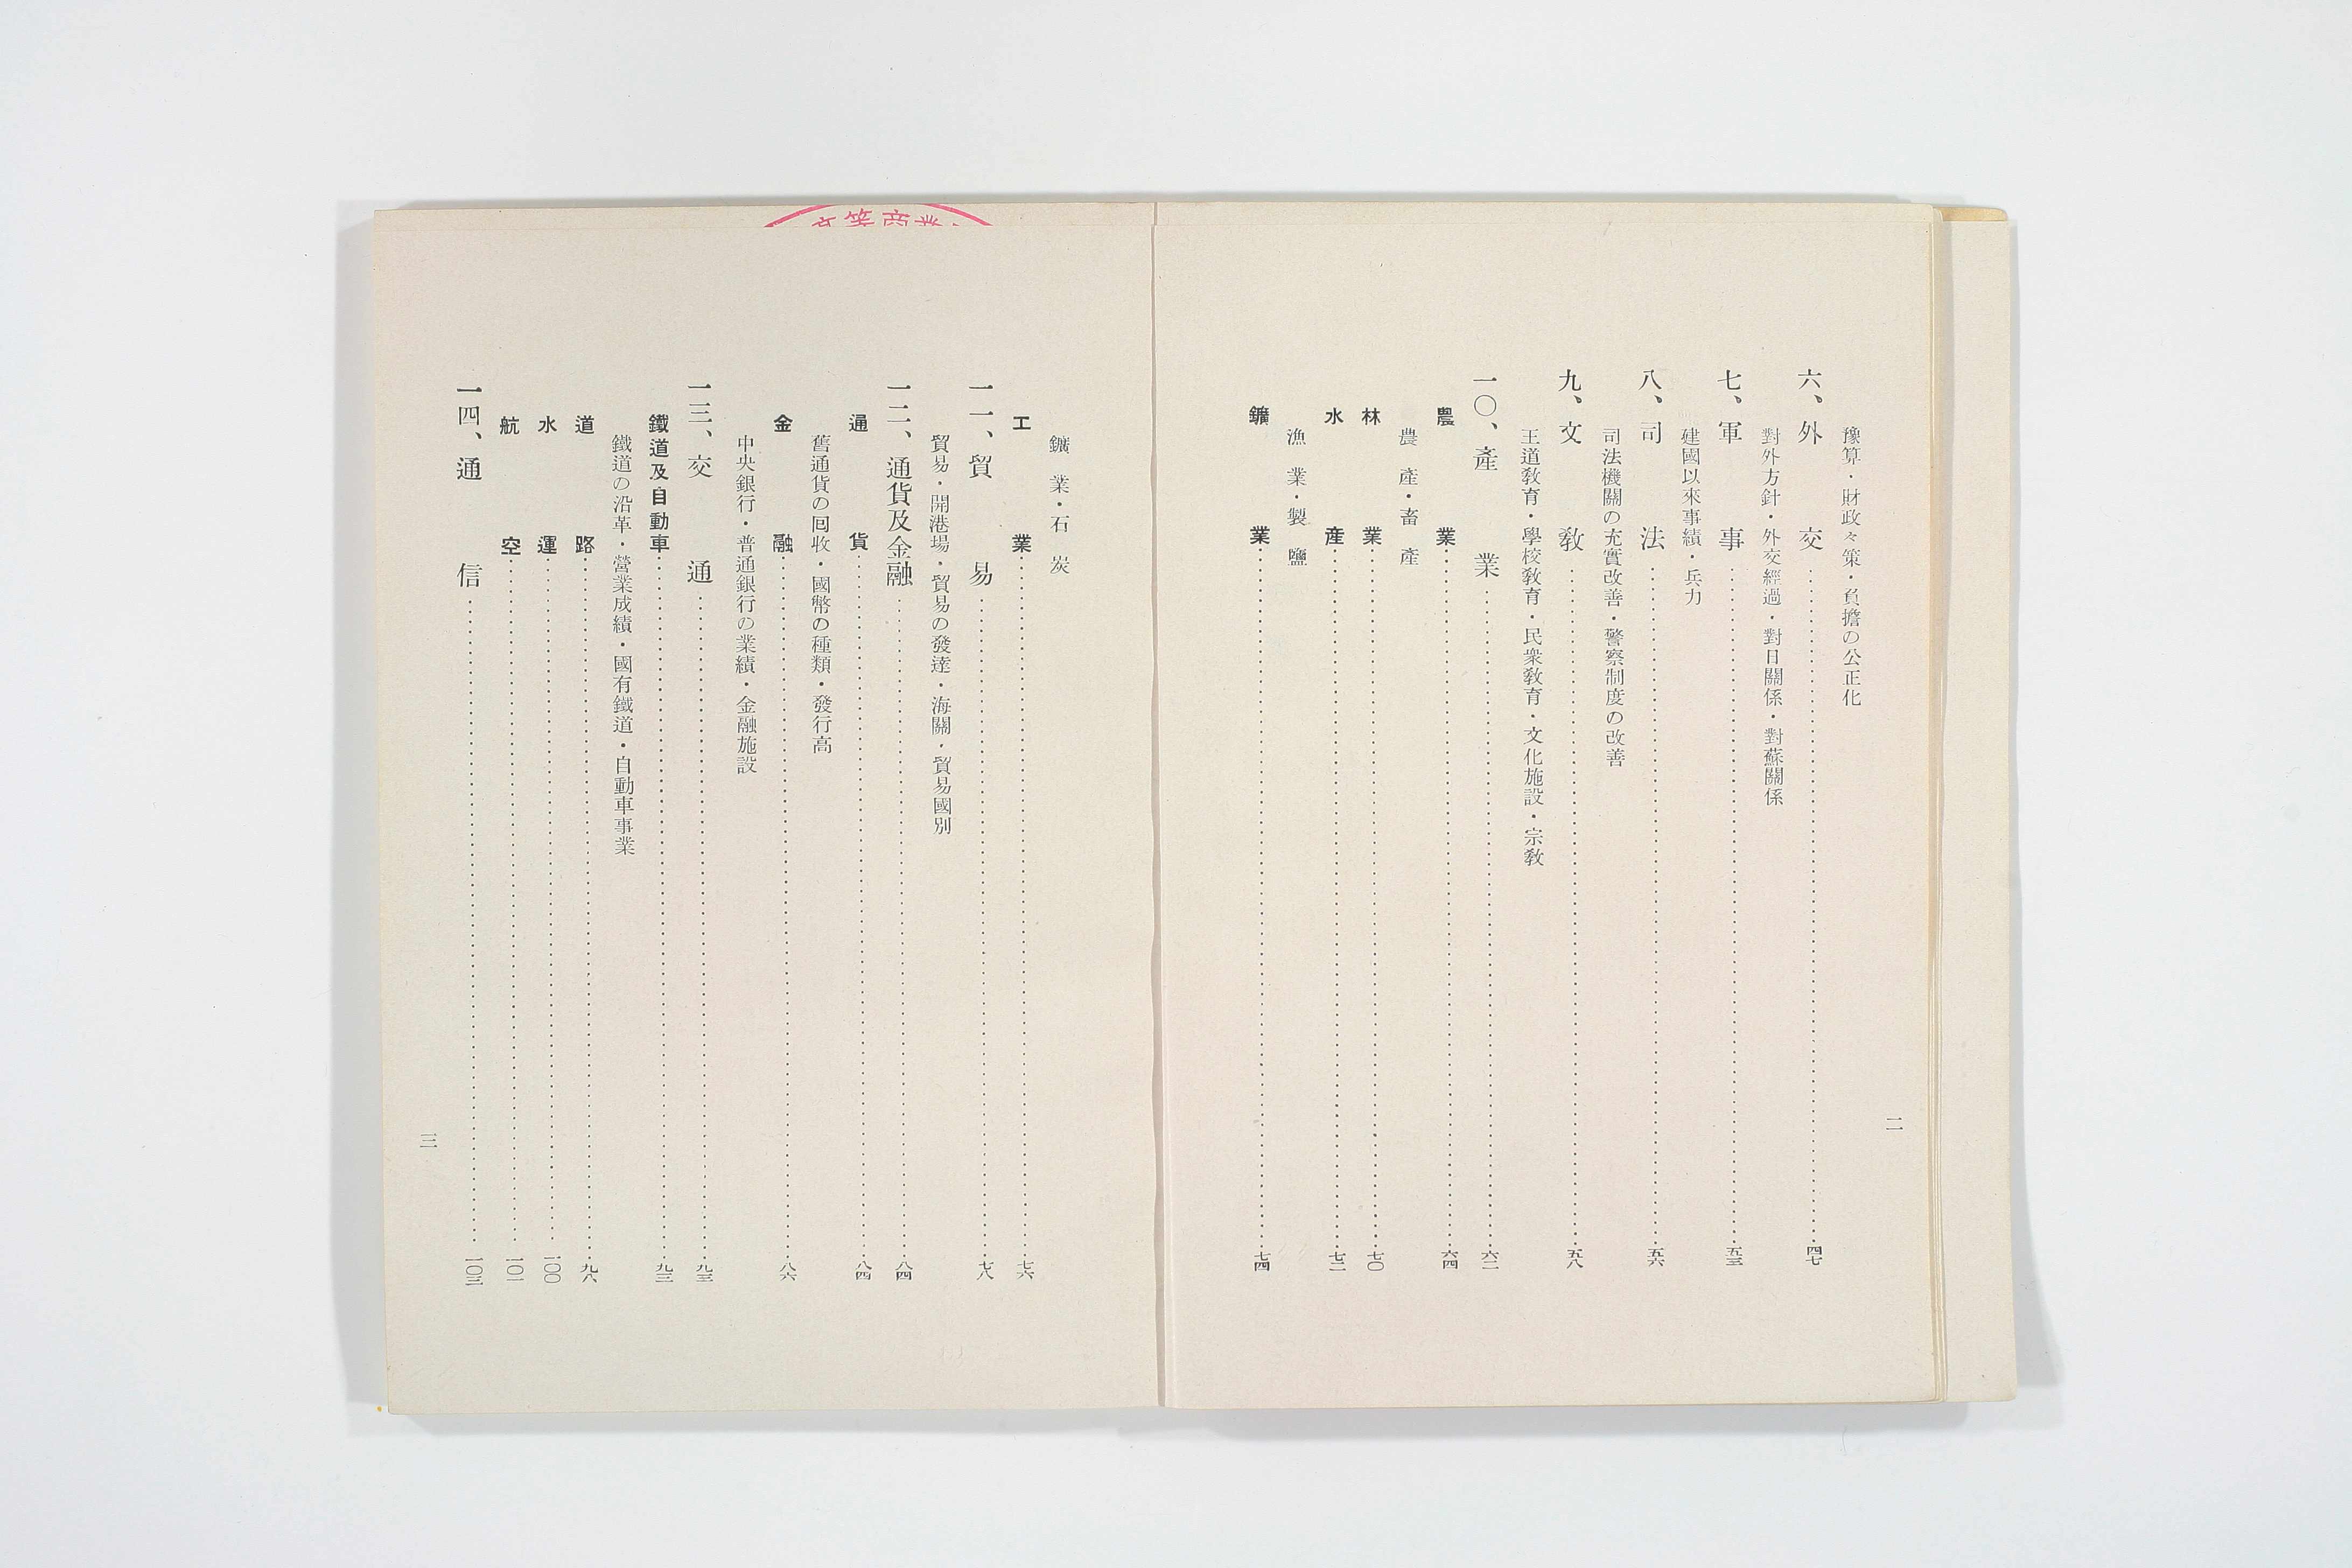 豫算・財政々策・負擔の公正化
六、外交……四七
對外方針・外交經過・對日關係・對蘇關係
七、軍事……五三
建國以來事績・兵力
八、司法……五六
司法機關の充實改善・警察制度の改善
九、文敎……五八
王道敎育・學校敎育・民衆敎育・文化施設・宗敎
一〇、產業……六二
農業……六四
農產・畜產
林業……七〇
水產……七二
漁業・製鹽
鑛業……七四
二
鑛業・石炭
工業……七六
一一、貿易……七八
貿易・開港場・貿易の發達・海關・貿易國別
一二、通貨及金融……八四
通貨……八四
舊通貨の回收・國幣の種類・發行高
金融……八六
中央銀行・普通銀行の業績・金融施設
一三、交通……九三
鐵道及自動車……九三
鐵道の沿革・營業成績・國有鐵道・自動車事業
道路……九八
水運……一〇〇
航空……一〇一
一四、通信……一〇三
三
高等商業